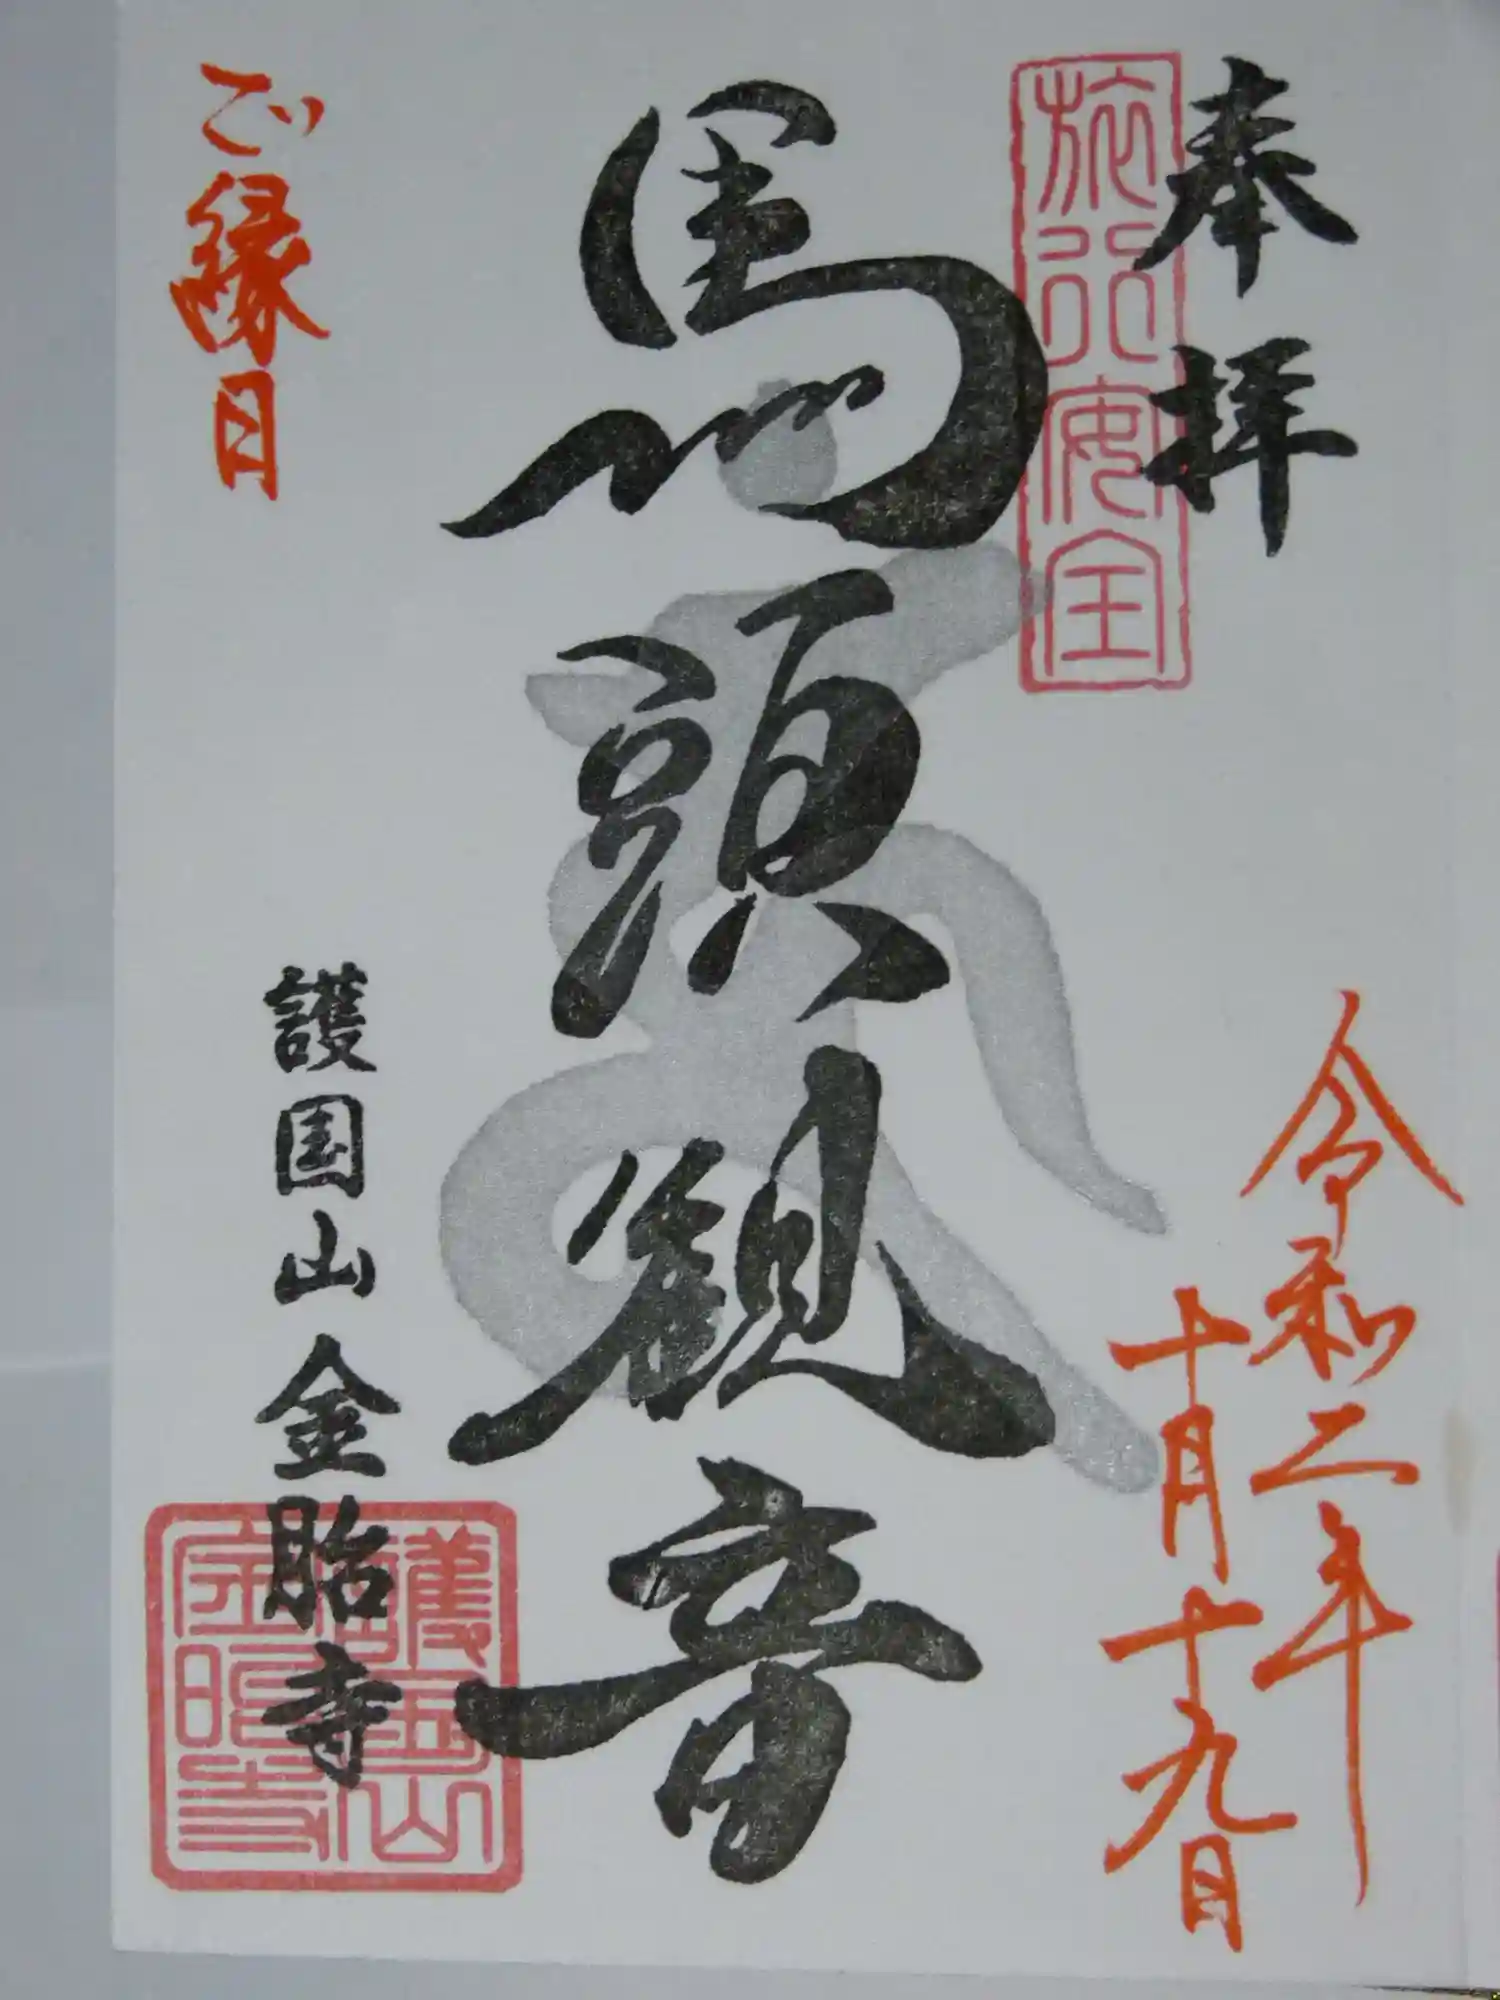 奉拝
旅行安全
令和二年
十月十九日
馬頭観音
ご縁日
護国山金胎寺
護国山
金胎寺